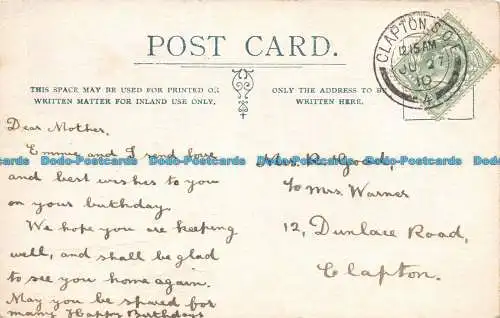 POST CARD.
THIS SPACE MAY BE USED FOR PRINTED OR
WRITTEN MATTER FOR INLAND USE ONLY.
ONLY THE ADDRESS TO BE
WRITTEN HERE.
CLAPTON. S.O.
12.15 AM
JU 27
10
4
Dear Mother,
Emmie and I send love
and best wishes to you
on your birthday.
We hope you are keeping
well, and shall be glad
to see you home again.
May you be spared for
many Happy Birthdays
Mrs. R. Good,
c/o Mrs. Warner
12, Dunlace Road,
Clapton.
Dodo-Postcards Dodo-Postcards Dodo-Postcards Dodo-Postcards Dodo-Postcards
Dodo-Postcards Dodo-Postcards Dodo-Postcards Dodo-Postcards Dodo-Postcards